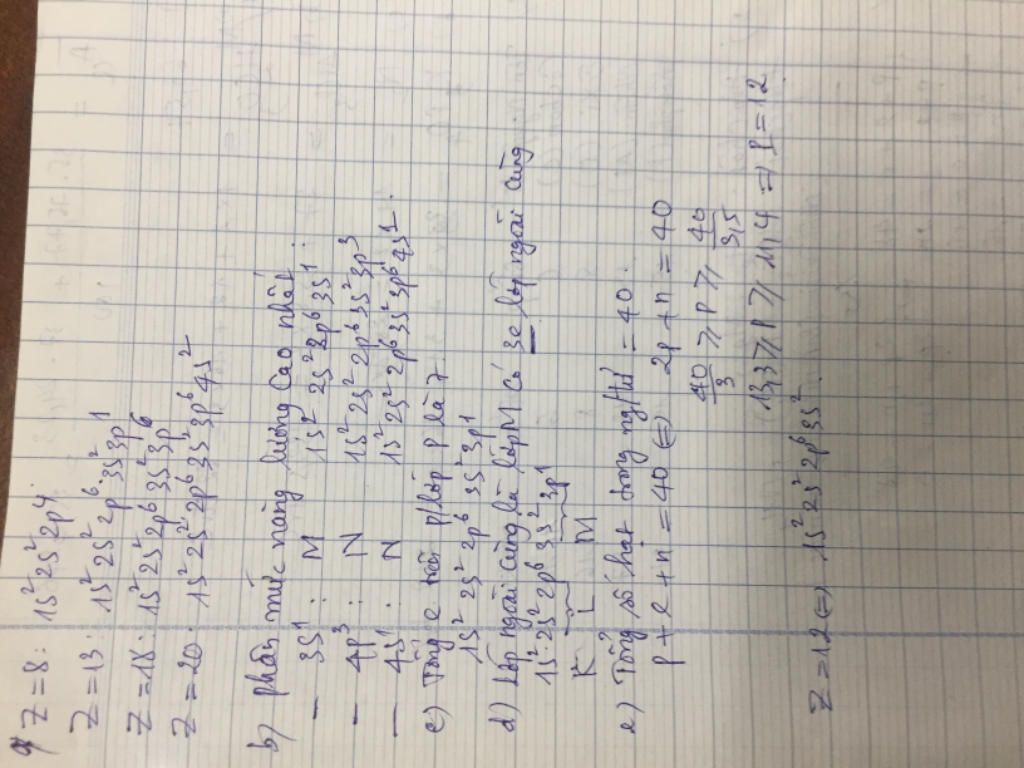 a) Z = 8 : 1s² 2s² 2p⁴.
Z = 13 : 1s² 2s² 2p⁶ 3s² 3p¹
Z = 18 : 1s² 2s² 2p⁶ 3s² 3p⁶
Z = 20 . 1s² 2s² 2p⁶ 3s² 3p⁶ 4s²
b) phân mức năng lượng cao nhất
– 3s¹ : M 1s² 2s² 2p⁶ 3s¹.
– 4p³ : N 1s² 2s² 2p⁶ 3s² 3p³
– 4s¹ : N 1s² 2s² 2p⁶ 3s² 3p⁶ 4s¹.
c) Tổng e p/lớp p là 7.
1s² 2s² 2p⁶ 3s² 3p¹
d) Lớp ngoài cùng là lớp M có 3e lớp ngoài cùng
1s² 2s² 2p⁶ 3s² 3p¹
K L M
e) Tổng số hạt trong ng/tử = 40.
p + e + n = 40 (=) 2p + n = 40
40/3 ⩾ p ⩾ 40/3,5
13,3 ⩾ p ⩾ 11,4 => p = 12
Z = 12 (=) 1s² 2s² 2p⁶ 3s².